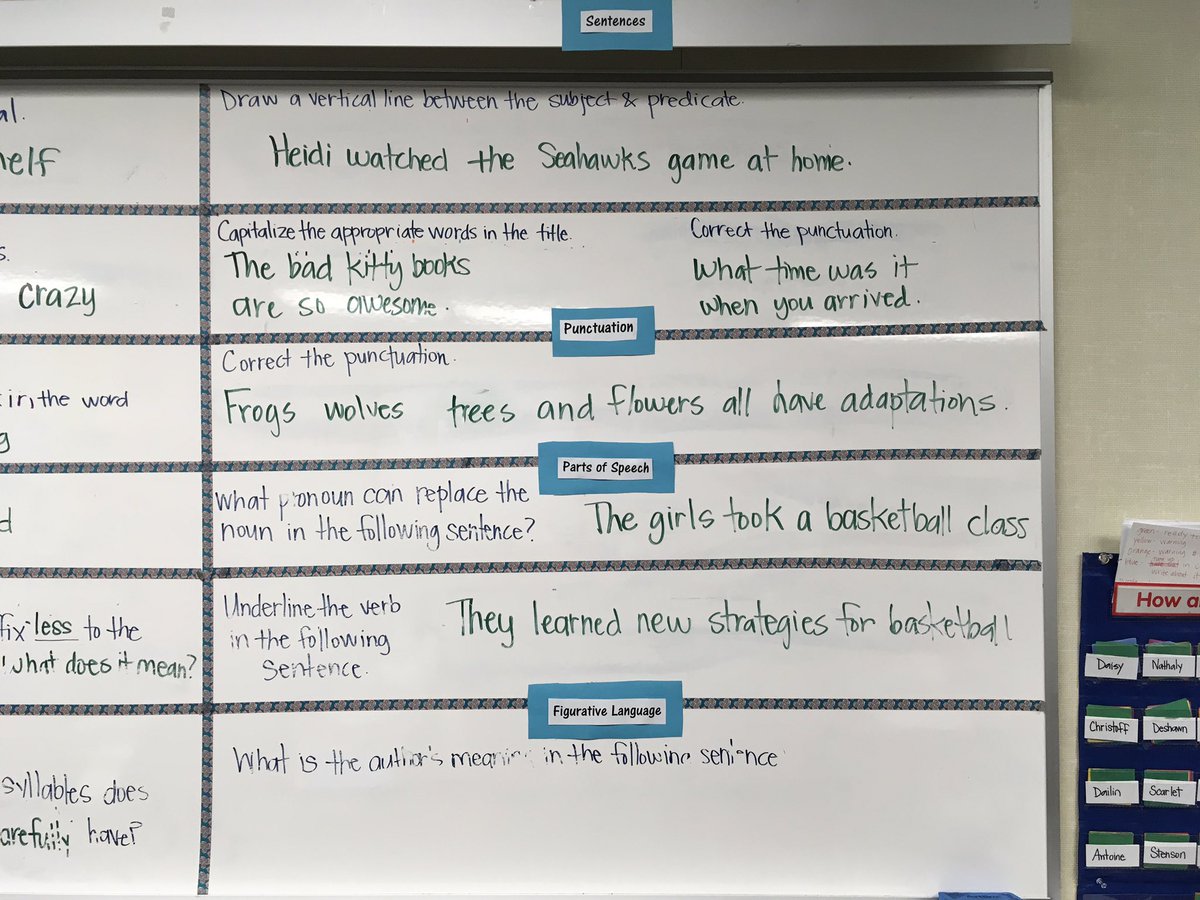 Sentences
al.
elf
Draw a vertical line between the subject & predicate.
Heidi watched the Seahawks game at home.
s.
crazy
Capitalize the appropriate words in the title.
The bad kitty books
are so awesome.
Correct the punctuation.
What time was it
when you arrived.
Punctuation
ir, the word
g
Correct the punctuation.
Frogs wolves trees and flowers all have adaptations.
Parts of Speech
d
What pronoun can replace the
noun in the following sentence?
The girls took a basketball class
fix -less to the
what does it mean?
Underline the verb
in the following
Sentence.
They learned new strategies for basketball
Figurative Language
syllables does
arefully have?
What is the author's meaning in the following sentence
yellow - warning
How a
Daisy
Nathaly
Christoff
Deshawn
Dailin
Scarlet
Antoine
Stenson